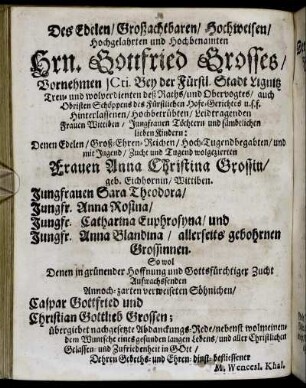 Des Edelen/ Großachtbaren/ Hochweisen/
Hochgelahrten und Hochbenamten
Hrn. Gottfried Grosses/
Vornehmen JCti. Bey der Fürstl. Stadt Lignitz
Treu- und wolverdienten deß Raths/ und Obervogtes/ auch
Obristen Schöppens des Fürstlichen Hofe-Gerichtes u.s.f.
Hinterlassenen/ Hochbetrübten/ Leidtragenden
Frauen Wittiben/ Jungfrauen Töchtern und sämbtlichen
lieben Kindern:
Denen Edelen/ Groß-Ehren-Reichen/ Hoch-Tugendbegabten/ und
mit Jugend/ Zucht und Tugend wolgezierten
Frauen Anna Christina Grossin/
geb. Eichhornin/ Wittiben.
Jungfrauen Sara Theodora/
Jungfr. Anna Rosina/
Jungfr. Catharina Euphrosyna/ und
Jungfr. Anna Blandina/ allerseits gebohrnen
Grossinnen.
So wol
Denen in grünender Hoffnung und Gottsfürchtiger Zucht
Aufwachsenden
Annoch-zarten verweiseten Söhnichen/
Caspar Gottfried und
Christian Gottlieb Grossen;
übergiebet nachgesetzte Abdanckungs-Rede/ nebenst wolmeinen-
dem Wuntsche eines gesunden langen Lebens/ und aller Christlichen
Gelassen- und Zufriedenheit in GOtt/
Dehren Gebeths- und Ehren- dinst-beflissener
M. Wencesl. Khal.